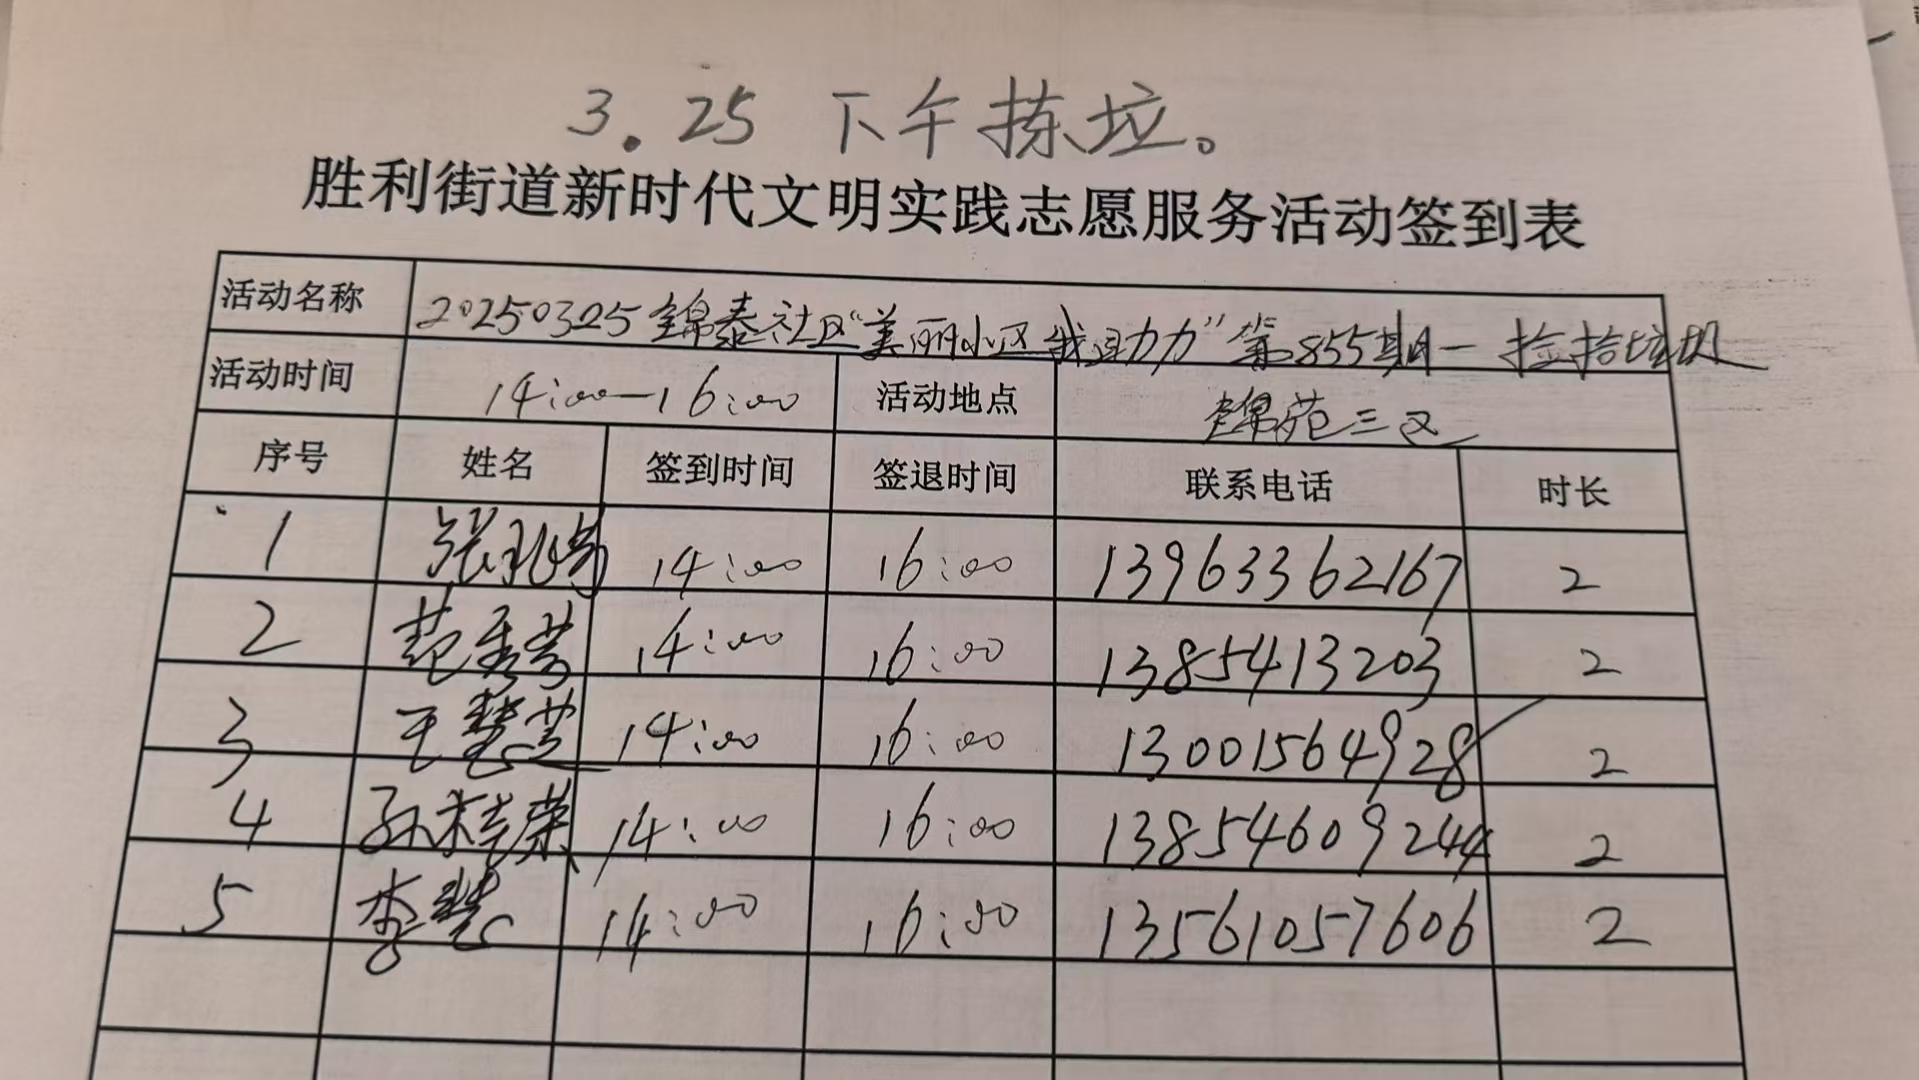 3.25 下午拣垃。
胜利街道新时代文明实践志愿服务活动签到表
活动名称 20250325锦泰社区“美丽小区我助力”第855期—捡拾垃圾
活动时间 14:00—16:00 活动地点 锦苑三区
序号 姓名 签到时间 签退时间 联系电话 时长
1 张 14:00 16:00 13963362167 2
2 范秀芳 14:00 16:00 1385413203 2
3 王慧兰 14:00 16:00 13001564928 2
4 孙桂荣 14:00 16:00 13854609244 2
5 李慧 14:00 16:00 13561057606 2